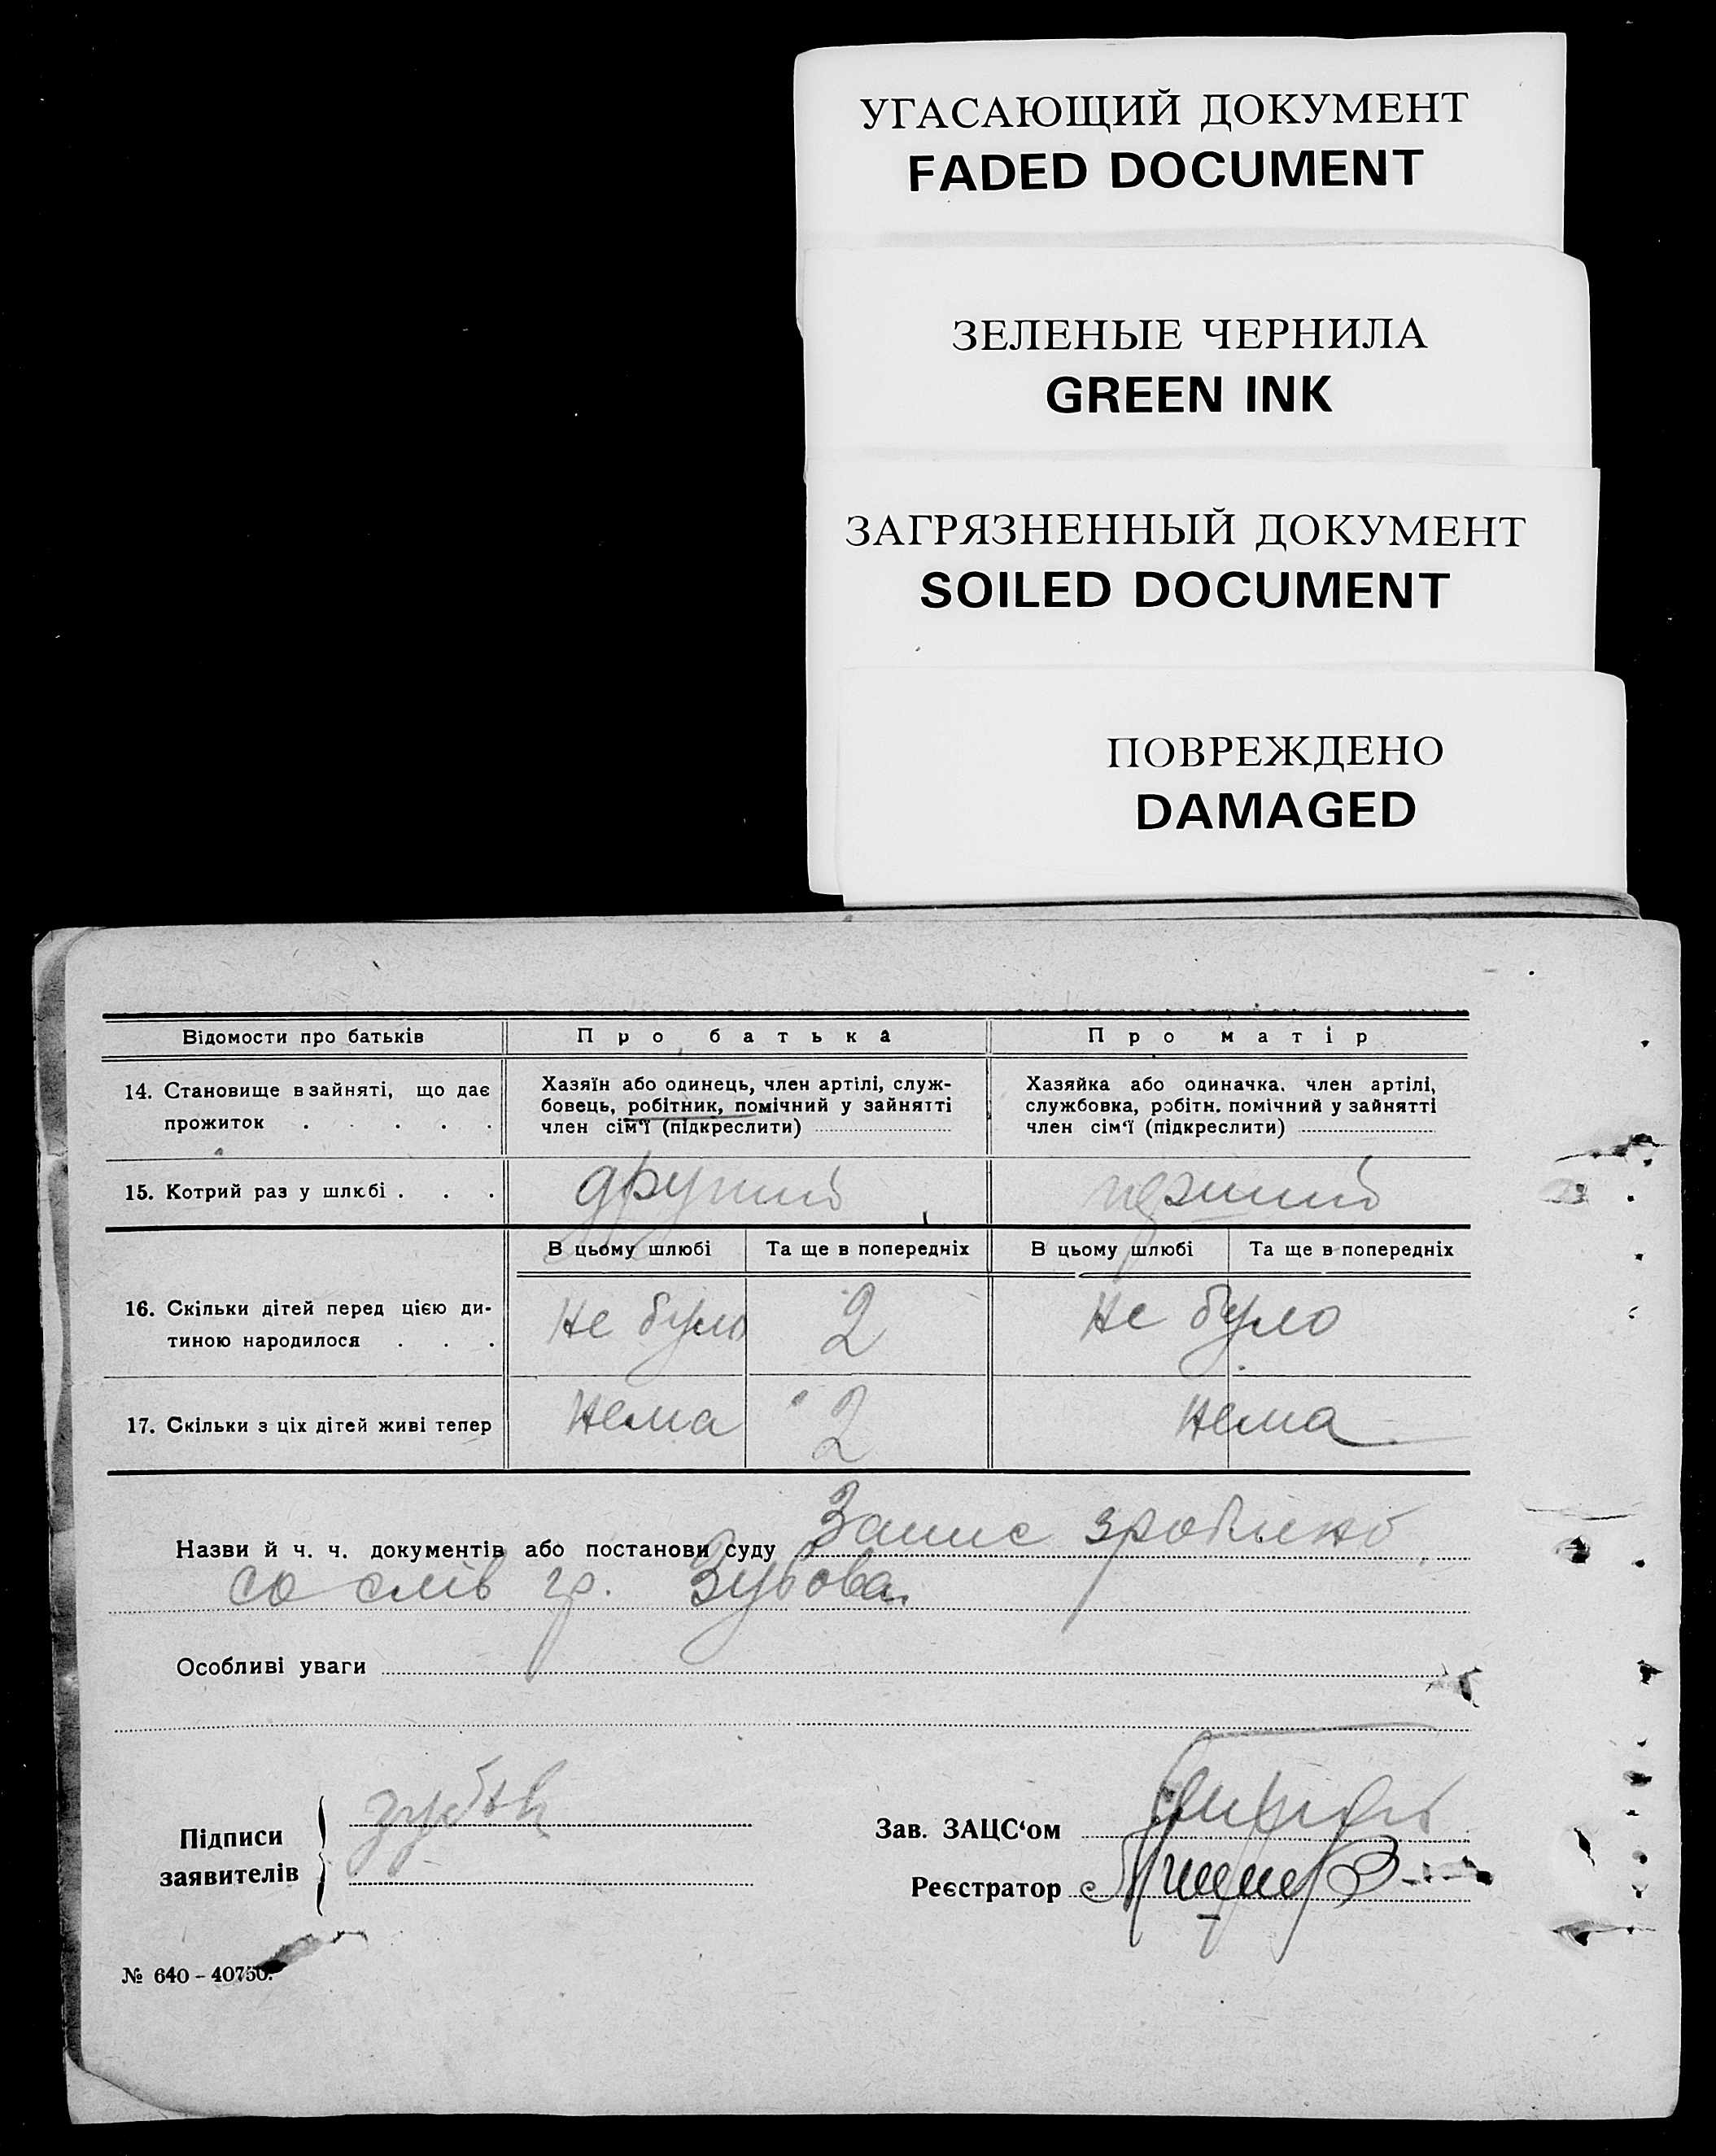 УГАСАЮЩИЙ ДОКУМЕНТ
FADED DOCUMENT
ЗЕЛЕНЫЕ ЧЕРНИЛА
GREEN INK
ЗАГРЯЗНЕННЫЙ ДОКУМЕНТ
SOILED DOCUMENT
ПОВРЕЖДЕНО
DAMAGED
Відомости про батьків Про батька Про матір
14. Становище в зайняті, що дає прожиток . . . . .
Хазяїн або одинець, член артілі, служ-
бовець, робітник, помічний у зайнятті
член сім'ї (підкреслити)
Хазяйка або одиначка, член артілі,
службовка, робітн. помічний у зайнятті
член сім'ї (підкреслити)
15. Котрий раз у шлюбі . . . другий перший
В цьому шлюбі Та ще в попередніх В цьому шлюбі Та ще в попередніх
16. Скільки дітей перед цією ди-
тиною народилося . . . Не було 2 Не було
17. Скільки з ціх дітей живі тепер Нема 2 Нема
Назви й ч. ч. документів або постанови суду Запис зроблено
со слів гр. Зубова.
Особливі уваги
Підписи
заявителів
Зав. ЗАЦС'ом
Реєстратор
№ 640 – 40750.